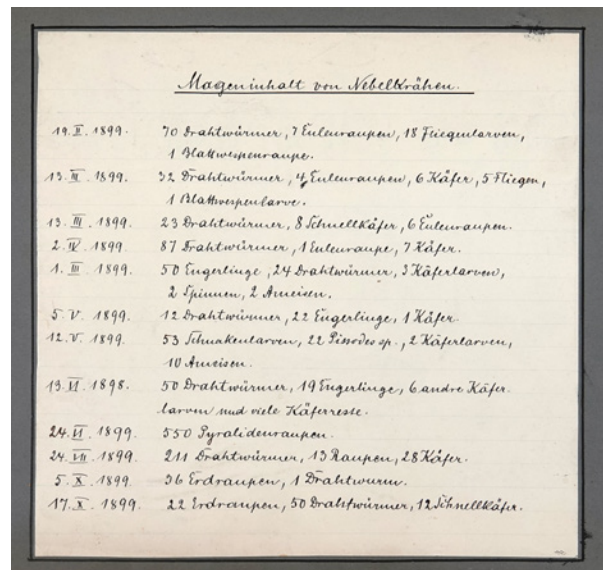 Mageninhalt von Nebelkrähen.
19. II. 1899. 70 Drahtwürmer, 7 Eulenraupen, 18 Fliegenlarven,
1 Blattwespenraupe.
13. III. 1899. 32 Drahtwürmer, 4 Eulenraupen, 6 Käfer, 5 Fliegen,
1 Blattwespenlarve.
13. III. 1899. 23 Drahtwürmer, 8 Schnellkäfer, 6 Eulenraupen.
2. IV. 1899. 87 Drahtwürmer, 1 Eulenraupe, 7 Käfer.
1. III. 1899. 50 Engerlinge, 24 Drahtwürmer, 3 Käferlarven,
2 Spinnen, 2 Ameisen.
5. V. 1899. 12 Drahtwürmer, 22 Engerlinge, 1 Käfer.
12. V. 1899. 53 Schnakenlarven, 22 Pissodes sp., 2 Käferlarven,
10 Ameisen.
13. VI. 1898. 50 Drahtwürmer, 19 Engerlinge, 6 andre Käfer.
larven und viele Käferreste.
24. VI. 1899. 550 Pyralidenraupen.
24. VIII. 1899. 211 Drahtwürmer, 13 Raupen, 28 Käfer.
5. X. 1899. 36 Erdraupen, 1 Drahtwurm.
17. X. 1899. 22 Erdraupen, 50 Drahtwürmer, 12 Schnellkäfer.